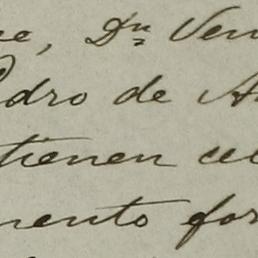 Dn Ven
dro de A
tienen cel
mento for